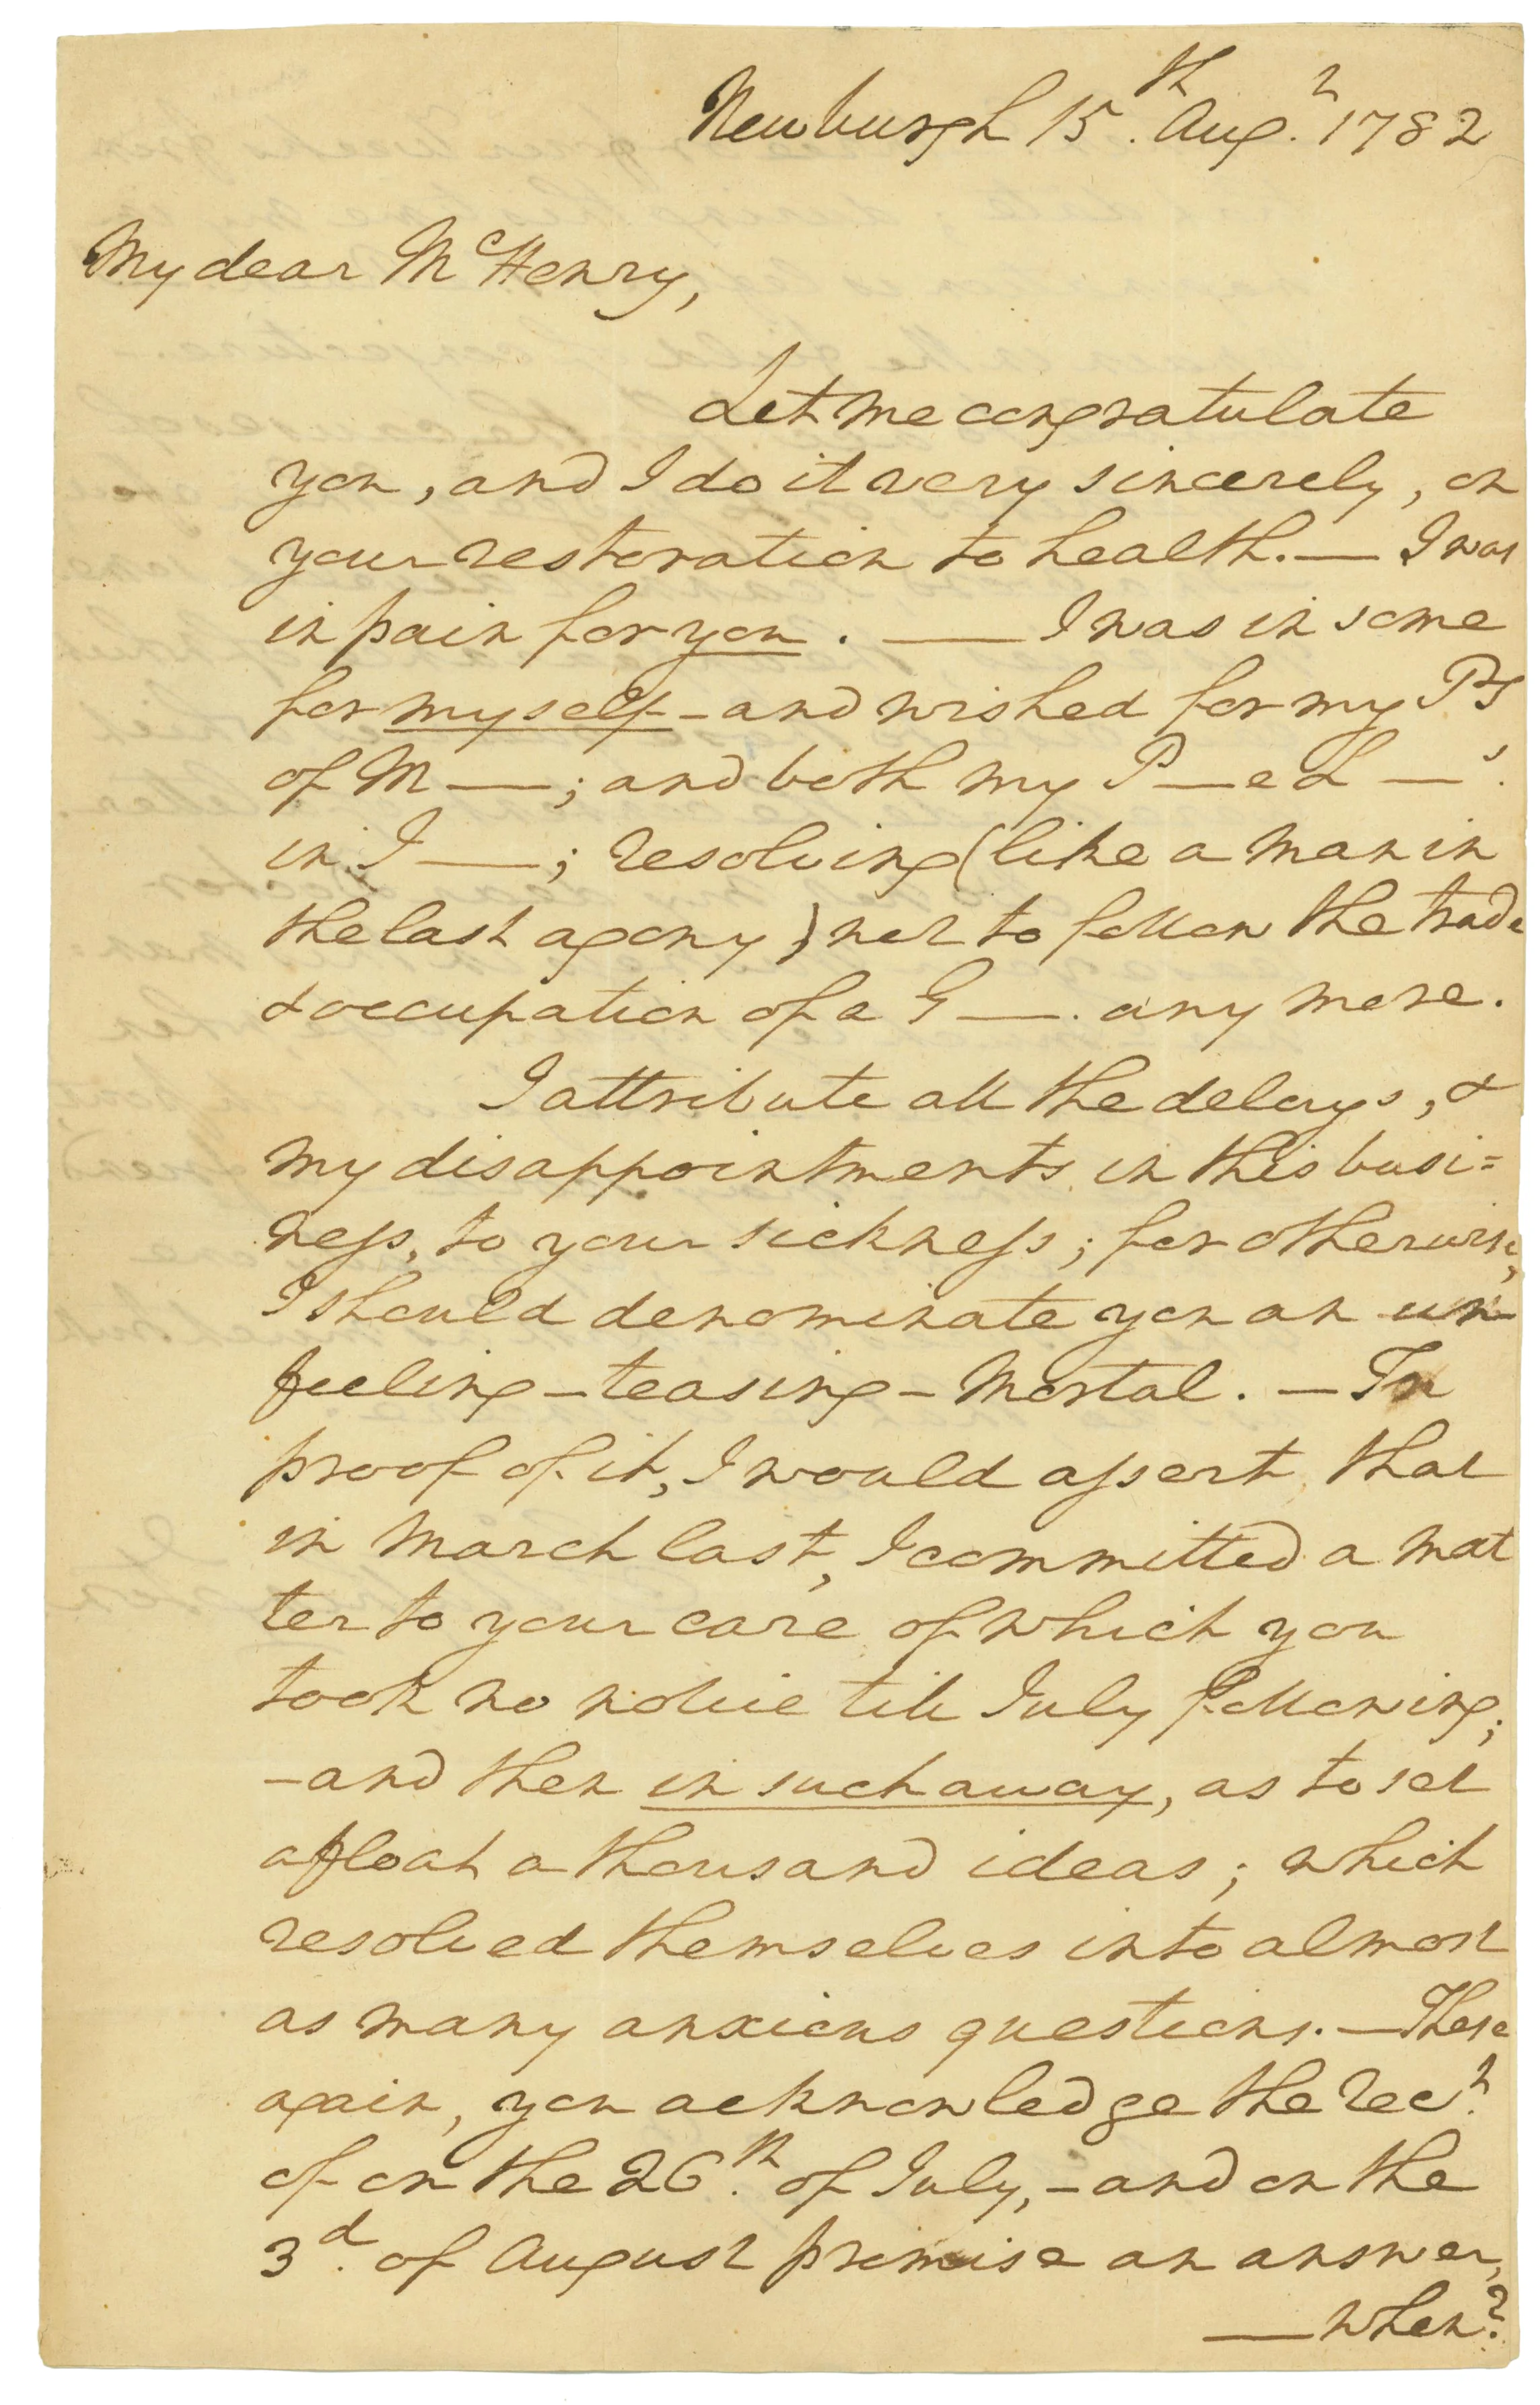 Newburgh 15th. Augt. 1782
My dear McHenry,
Let me congratulate
you, and I do it very sincerely, on
your restoration to health. — I was
in pain for you. — I was in some
for myself – and wished for my Ps
of M —; and both my P — & L — s.
in I —; resolving (like a man in
the last agony) not to follow the trade
& occupation of a G —. any more.
I attribute all the delays, &
my disappointments in this busi=
ness, to your sickness; for otherwise,
I should denominate you an un-
feeling – teasing – mortal. — In
proof of it, I would assert, that
in March last, I committed a mat
ter to your care of which you
took no notice till July following;
– and then in such a way, as to set
afloat a thousand ideas; which
resolved themselves into almost
as many anxious questions. — These
again, you acknowledge the rect.
of on the 26th. of July, – and on the
3d. of August promise an answer,
— when?